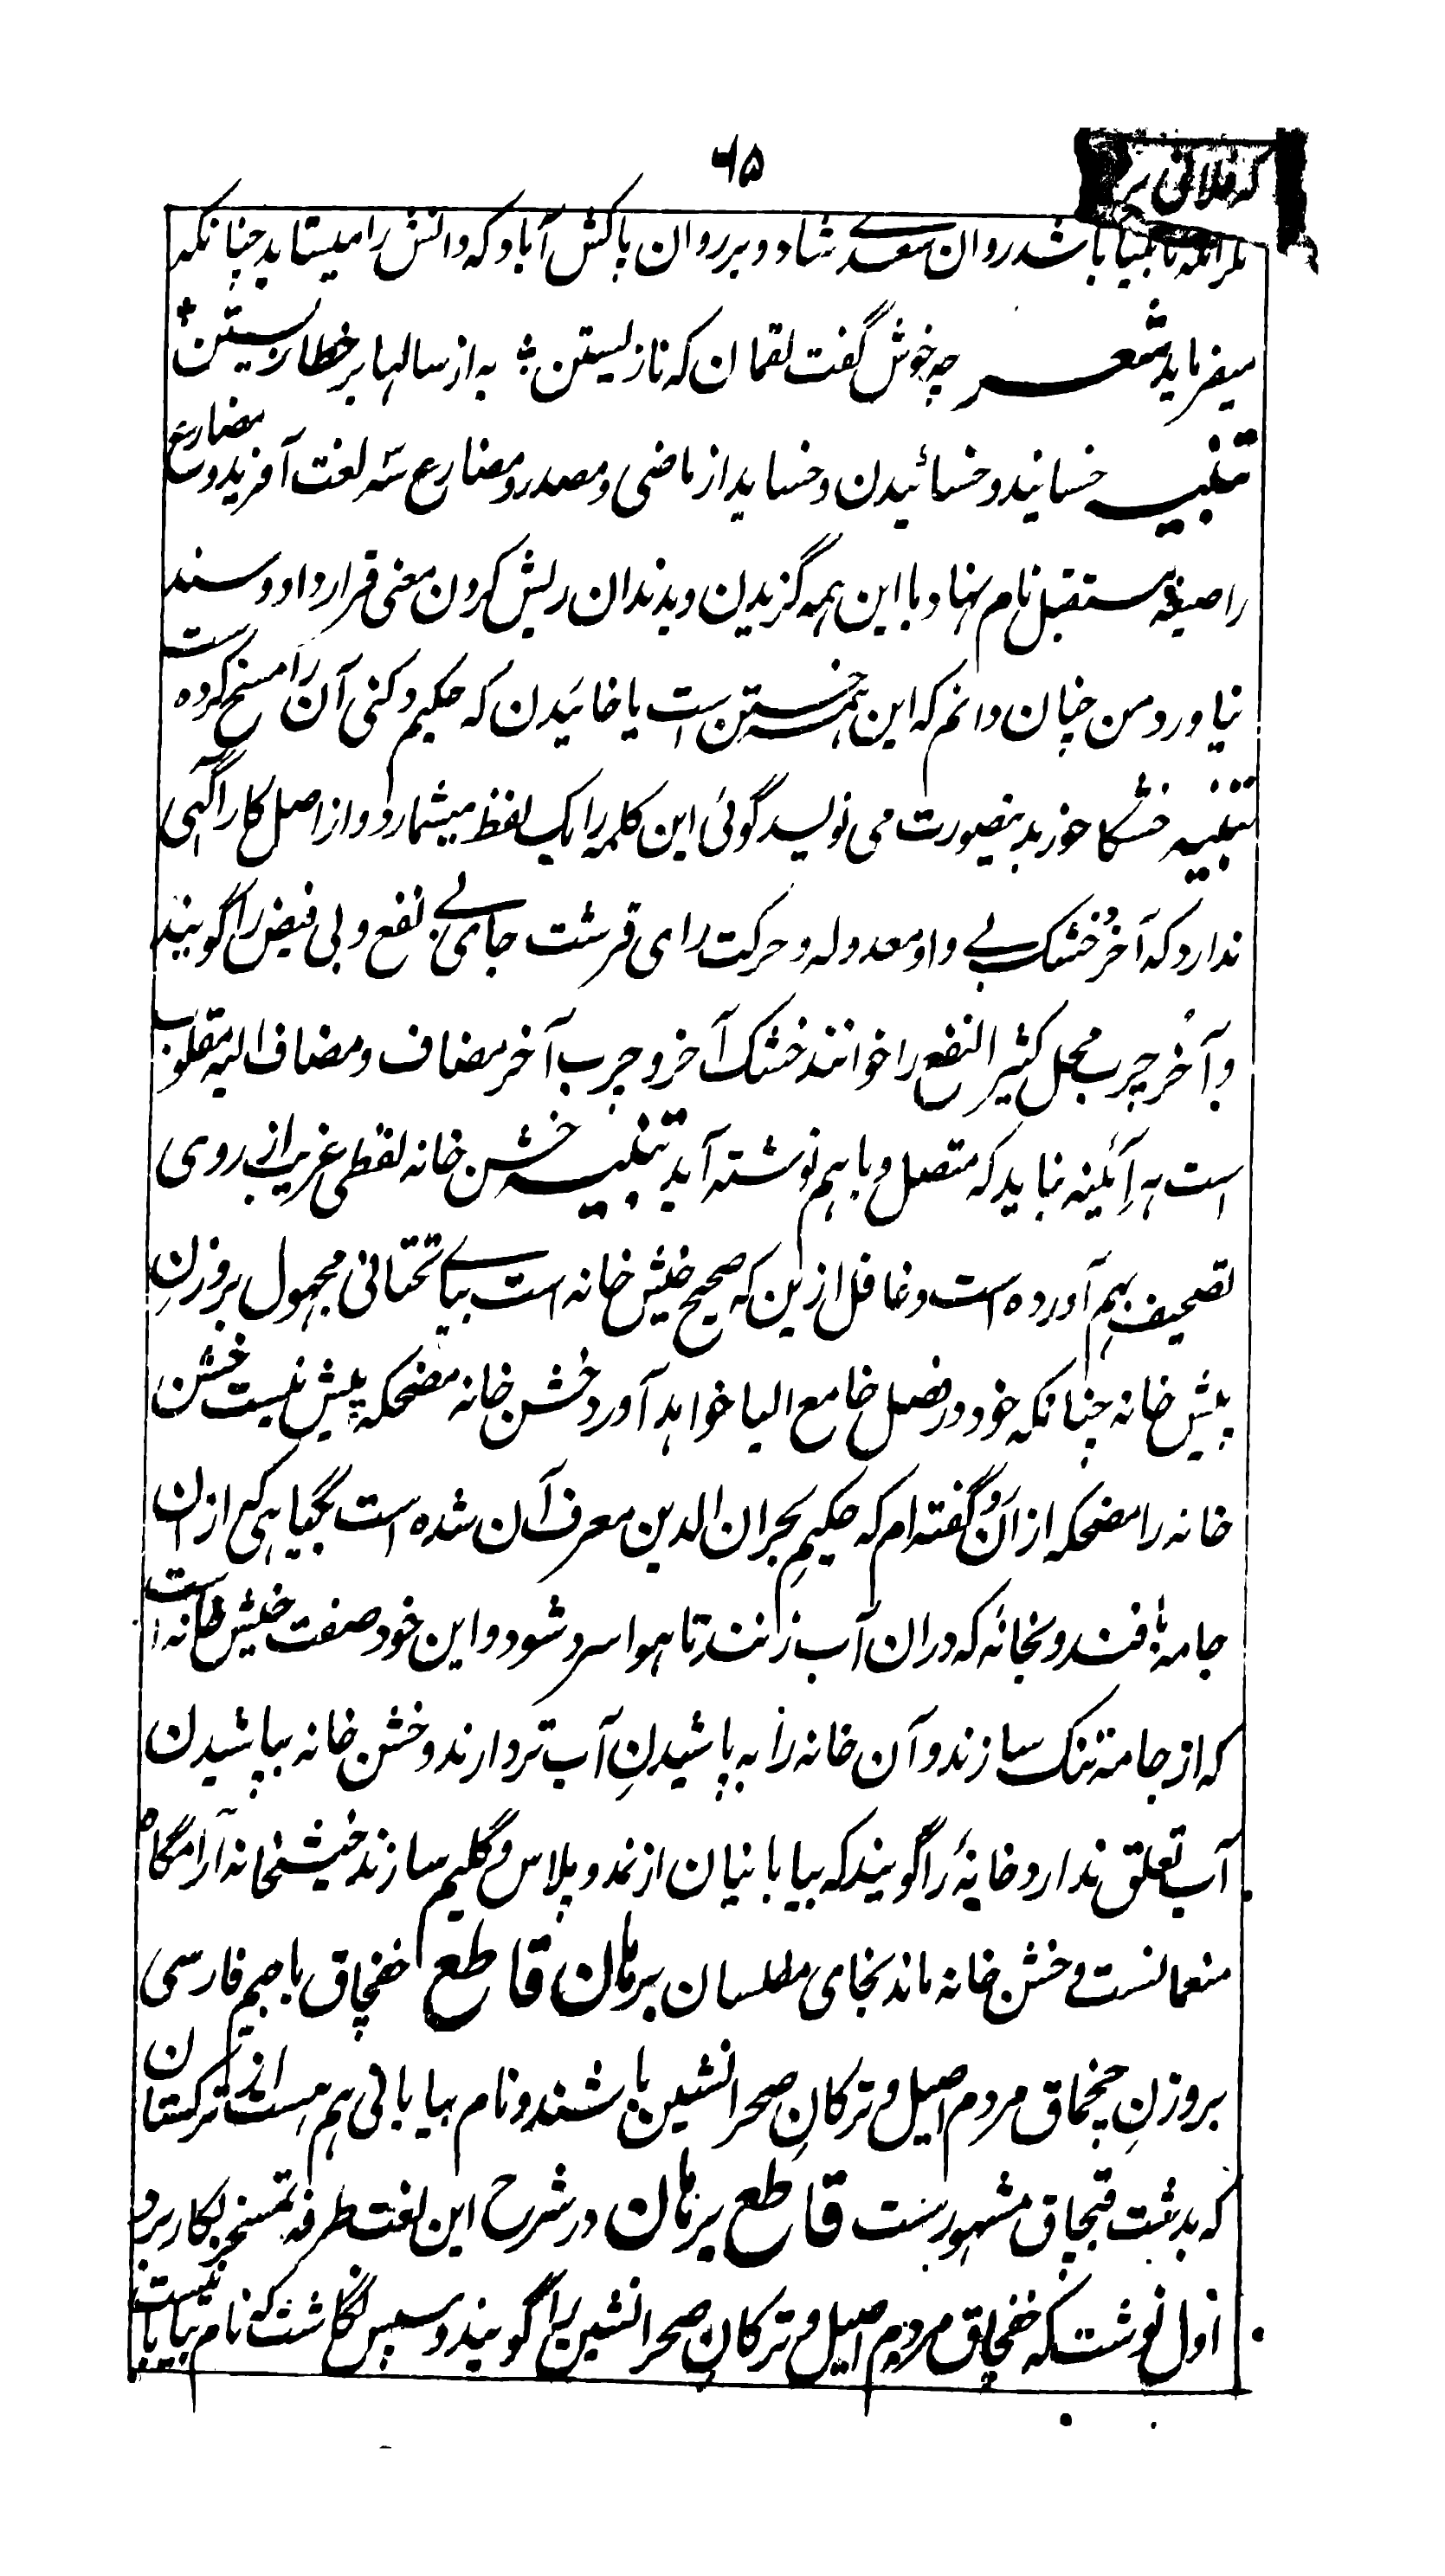 ۶۵
که فلانی بر
مگر آنکه نابینا باشد روان سعدی شاد و بر روان پاکش آباد که دانش را میستاید چنانکه
میفرماید شعر چه خوش گفت لقمان که نازیستن ؛ به از سالها بر خطا زیستن
تنبیه خسانید و خسائیدن و خساید از ماضی و مصدر و مضارع سه لغت آفرید و مضارع
را صیغهٔ مستقبل نام نهاد با این همه گزیدن و بدندان ریش کردن معنی قرار داد و سند
نیاورد و من چنان دانم که این همه خستن است یا خائیدن که حکیم دکنی آن را مسخ کرده است
تنبیه خشکاخور بدینصورت می نویسد گوئی این کلمه را یک لفظ میشمارد و از اصل کار آگهی
ندارد که آخُر خشک بے واو معدوله و حرکت رای قرشت جای بے نفع و بی فیض را گویند
و آخُر چرب محل کثیر النفع را خوانند خشک آخر و چرب آخر مضاف و مضاف الیه مقلوب
است هر آئینه نباید که متصل و با هم نوشته آید تنبیه خشن خانه لفظی غریب از روی
تصحیف بهم آورده است و غافل ازین که صحیح خیش خانه است بیاے تحتانی مجهول بر وزنِ
پیش خانه چنانکه خود در فصل خا مع الیا خواهد آورد خشن خانه مضحکه پیش نیست خشن
خانه را مضحکه از آن رو گفته ام که حکیمِ بحران الدین معرف آن شده است بگیاهی که از ان
جامه بافند و بخانهٔ که در ان آب زنند تا هوا سرد شود و این خود صفت خیش خانه است
که از جامهٔ تنک سازند و آن خانه را به پاشیدنِ آب تر دارند و خشن خانه بپاشیدن
آب تعلق ندارد خانهٔ را گویند که بیابانیان از نمد و پلاس و گلیم سازند خیشخانه آرامگاه
منعمانست و خشن خانه ماند بجای مفلسان برهان قاطع خفچاق با جیم فارسی
بر وزنِ چخماق مردم اصیل و ترکانِ صحرا نشین باشند و نام بیابانی هم هست از ترکستان
که بدشت قبچاق مشهورست قاطع برهان در شرح این لغت طرفه تمسخر بکار برد
اول نوشت که خفچاق مردم اصیل و ترکانِ صحرا نشین را گویند و سپس نگاشت که نام بیابانیست